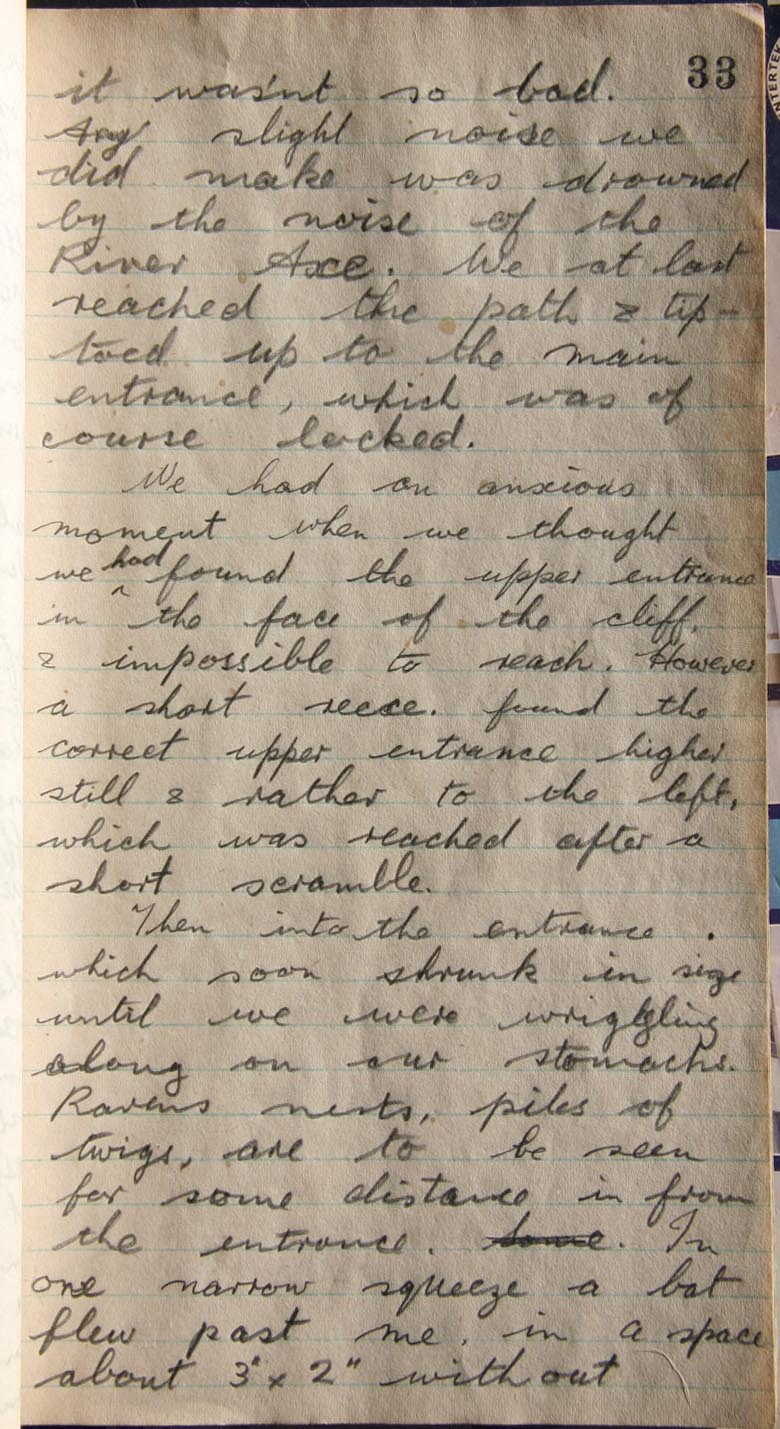 33
it wasn't so bad.
Any slight noise we
did make was drowned
by the noise of the
River Axe. We at last
reached the path & tip-
toed up to the main
entrance, which was of
course locked.
We had an anxious
moment when we thought
we had found the upper entrance
in the face of the cliff,
& impossible to reach. However
a short recce. found the
correct upper entrance higher
still & rather to the left,
which was reached after a
short scramble.
Then into the entrance.
which soon shrunk in size
until we were wriggling
along on our stomachs.
Ravens nests, piles of
twigs, are to be seen
for some distance in from
the entrance. Some. In
one narrow squeeze a bat
flew past me. in a space
about 3" x 2" without
INTERTEK